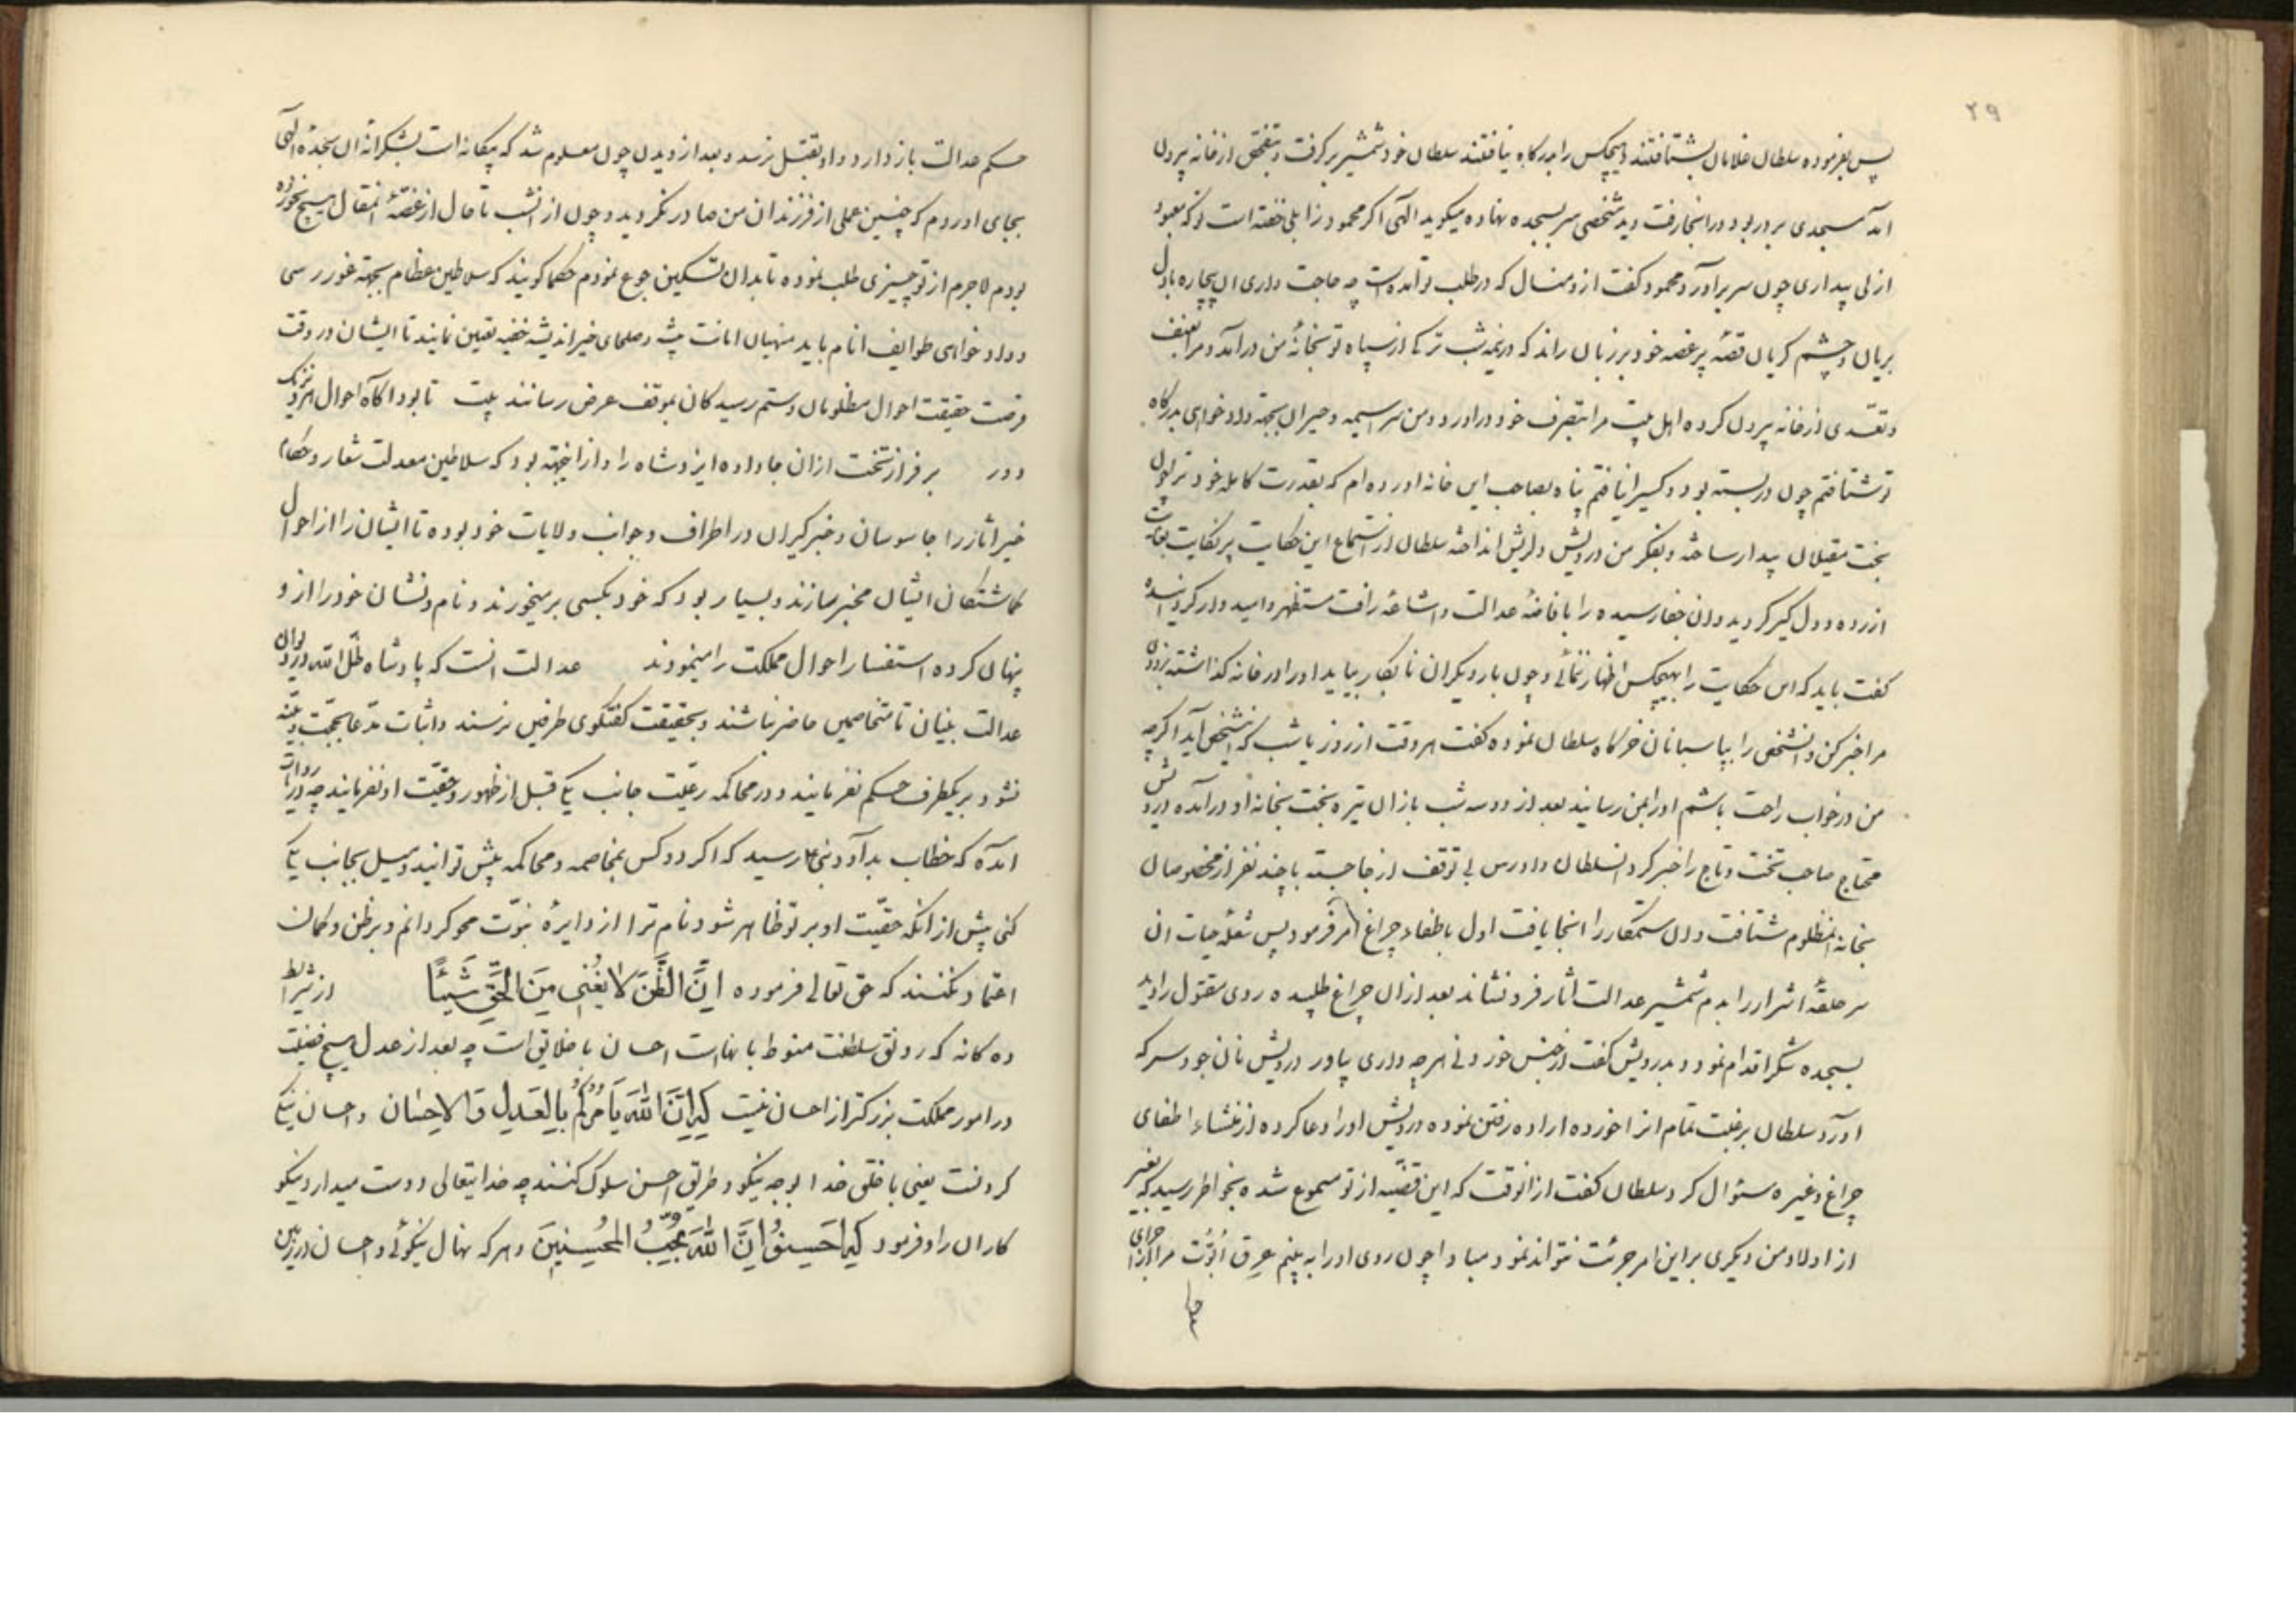 ۲۹
پس بفرموده سلطان غلامان بشتافتند و هیچکس را بدرگاه نیافتند سلطان خود شمشیر برگرفت و بتفحص از خانه بیرون
آمد مسجدی بر در بود در انجا رفت دید شخصی سر بسجده نهاده میگوید الهی اگر محمود زابلی خفته است تو که معبود
از لی بیداری چون سر برآورد محمود گفت از دو منسال که در طلب تو آمده است چه حاجت داری ان بیچاره با دل
بریان و چشم گریان قصه پر غصه خود بر زبان راند که در نیمه شب ترکی از سپاه تو بخانه من درآمد و مرا بعنف
و تعدی از خانه بیرون کرده اهل بیت مرا بتصرف خود دراورد و من سراسیمه و حیران بجهة دادخواهی بدرگاه
تو شتافتم چون در بسته بود و کسیرا نیافتم پناه بصاحب این خانه اورده ام که بقدرت کامله خود ترا چون
بخت مقبلان بیدار ساخته و بفکر من درویش دلریش انداخته سلطان از استماع این حکایت پر نکایت بغایت
ازرده و دل گیر گردید و ان جفا رسیده را بافاضه عدالت و اشاعه رافت مستظهر و امیدوار گردانیده
گفت باید که این حکایت را بهیچکس اظهار ننمائی و چون بار دیگر ان نابکار بیاید او را در خانه گذاشته بزودی
مرا خبر کن و انشخص را بپاسبانان خرگاه سلطان نموده گفت هر وقت از روز یا شب که اینشخص آید اگرچه
من در خواب راحت باشم او را بمن رسانید بعد از دو سه شب باز ان تیره بخت بخانه او درآمده درویش
محتاج صاحب تخت و تاج را خبر کرد انسلطان دادرس بی توقف از جا جسته با چند نفر از مخصوصان
بخانه انمظلوم شتافت و ان ستمکار را انجا یافت اول باطفاء چراغ امر فرمود پس شعله حیات ان
سر حلقه اشرار را بدم شمشیر عدالت اثار فرو نشاند بعد از ان چراغ طلبیده روی مقتول را دید
بسجده شکر اقدام نمود و بدرویش گفت از جنس خوردنی هر چه داری بیاور درویش نان جو و سرکه
اورد سلطان برغبت تمام انرا خورده اراده رفتن نموده درویش او را دعا کرده از منشاء اطفای
چراغ و غیره سئوال کرد سلطان گفت از انوقت که این قضیه از تو مسموع شده بخواطر رسید که بغیر
از اولاد من دیگری بر این امر جرئت نتواند نمود مبادا چون روی او را به بینم عرق ابوّت مرا از اجرای
حکم عدالت باز دارد و او بقتل نرسد و بعد از دیدن چون معلوم شد که بیگانه است بشکرانه ان سجده الهی
بجای اوردم که چنین عملی از فرزندان من صادر نگردید و چون از انشب تا حال از غصه انمقال هیچ نخورده
بودم لاجرم از تو چیزی طلب نموده تا بدان تسکین جوع نمودم حکما گویند که سلاطین عظام بجهة غور رسی
و دادخواهی طوایف انام باید منهیان امانت پیشه و صلحای خیر اندیشه خفیه تعین نمایند تا ایشان در وقت
فرصت حقیقت احوال مظلومان و ستم رسیدگان بموقف عرض رسانند بیت تا بود اگاه احوال هر نزدیک
و دور بر فراز تخت از ان جا داده ایزد شاه را و از اینجهة بود که سلاطین معدلت شعار و حکام
خیر اثار را جاسوسان و خبرگیران در اطراف و جوانب ولایات خود بوده تا ایشان را از احوال
گماشتگان ایشان مخبر سازند و بسیار بود که خود بکسی برمیخورند و نام و نشان خود را از او
پنهان کرده استفسار احوال مملکت را مینمودند عدالت انست که پادشاه ظل الله در دیوان
عدالت بنیان تا متخاصمین حاضر نباشند و بحقیقت گفتگوی طرفین نرسند و اثبات مدعا بحجّت و بیّنه
نشود بر یکطرف حکم نفرمایند و در محاکمه رعیّت جانب یکی قبل از ظهور حقیّت او نفرمایند چه در روایات
امده که خطاب بداود نبی رسید که اگر دو کس بمخاصمه و محاکمه پیش تو ایند و میل بجانب یکی
کنی پیش از انکه حقیّت او بر تو ظاهر شود نام ترا از دایره نبوّت محو گردانم و بر ظن و گمان
اعتماد نکنند که حق تعالی فرموده اِنَّ الظَّنَّ لا یُغْنی مِنَ الحَقِّ شَیْئًا از شرایط
ده گانه که رونق سلطنت منوط بانهاست احسان با خلایق است چه بعد از عدل هیچ فضیلت
در امور مملکت بزرگتر از احسان نیست کریمه اِنَّ اللهَ یَأمُرُکُم بِالعَدلِ وَالاِحسان و احسان نیکی
کردنست یعنی با خلق خدا بوجه نیکو و طریق احسن سلوک کنند چه خدایتعالی دوست میدارد نیکو
کاران را و فرمود کریمه اَحسِنوُا اِنَّ اللهَ یُحِبُّ المُحسِنینَ و هر که نهال نیکوئی و احسان در زمین